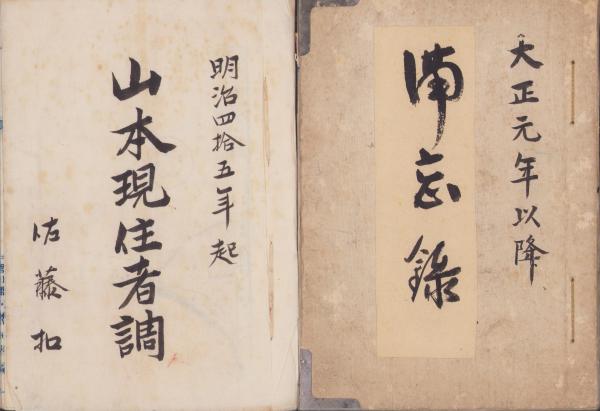 明治四拾五年起
山本現住者調
佐藤扣
大正元年以降
備忘録